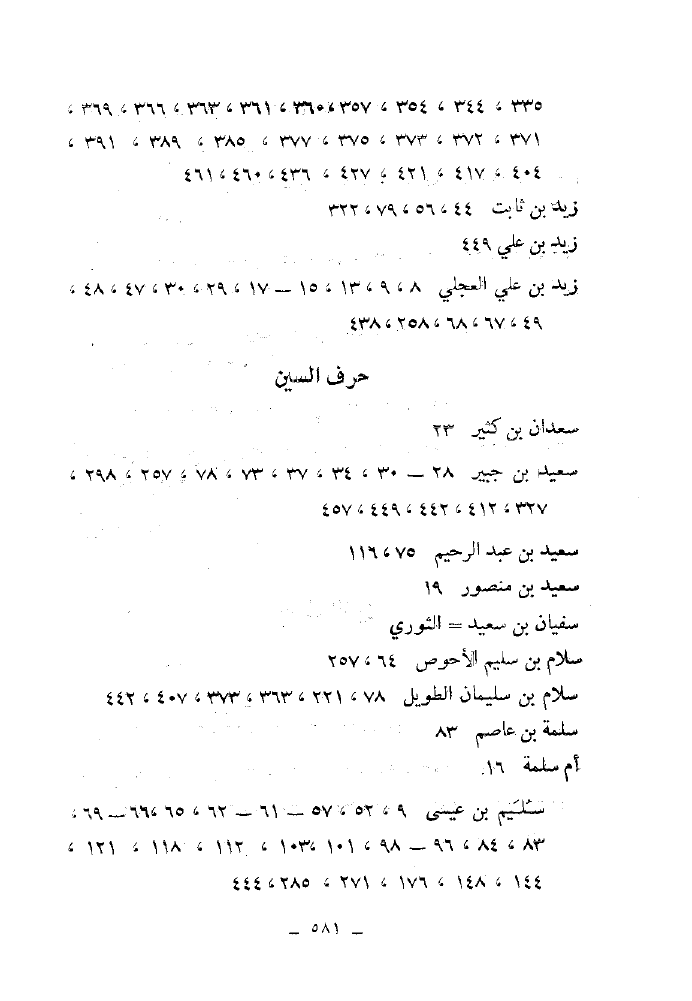 ٣٣٥ ، ٣٤٤ ، ٣٥٤ ، ٣٥٧ ،٣٦٠ ، ٣٦١ ، ٣٦٣ ، ٣٦٦ ، ٣٦٩ ،
٣٧١ ، ٣٧٢ ، ٣٧٣ ، ٣٧٥ ، ٣٧٧ ، ٣٨٥ ، ٣٨٩ ، ٣٩١ ،
٤٠٤ ، ٤١٧ ، ٤٢١ ، ٤٢٧ ، ٤٣٦ ،٤٦٠ ،٤٦١
زيد بن ثابت ٤٤ ،٥٦ ،٧٩ ،٣٢٢
زيد بن علي ٤٤٩
زيد بن علي العجلي ٨ ،٩ ،١٣ ، ١٥ – ١٧ ، ٢٩ ، ٣٠ ، ٤٧ ، ٤٨ ،
٤٩ ،٦٧ ،٦٨ ،٢٥٨ ،٤٣٨
حرف السين
سعدان بن كثير ٢٣
سعيد بن جبير ٢٨ – ٣٠ ، ٣٤ ، ٣٧ ، ٧٣ ، ٧٨ ، ٢٥٧ ، ٢٩٨ ،
٣٢٧ ،٤١٢ ،٤٤٢ ،٤٤٩ ،٤٥٧
سعيد بن عبد الرحيم ٧٥ ،١١٦
سعيد بن منصور ١٩
سفيان بن سعيد = الثوري
سلام بن سليم الأحوص ٦٤ ،٢٥٧
سلام بن سليمان الطويل ٧٨ ،٢٢١ ،٣٦٣ ،٣٧٣ ،٤٠٧ ،٤٤٢
سلمة بن عاصم ٨٣
أم سلمة ١٦
سُلَيم بن عيسى ٩ ،٥٢ ،٥٧ – ٦١ – ٦٢ ،٦٥ ،٦٦ – ٦٩ ،
٨٣ ،٨٤ ،٩٦ – ٩٨ ،١٠١ ،١٠٣ ، ١١٢ ، ١١٨ ، ١٢١ ،
١٤٤ ، ١٤٨ ، ١٧٦ ، ٢٧١ ، ٢٨٥ ،٤٤٤
– ٥٨١ –